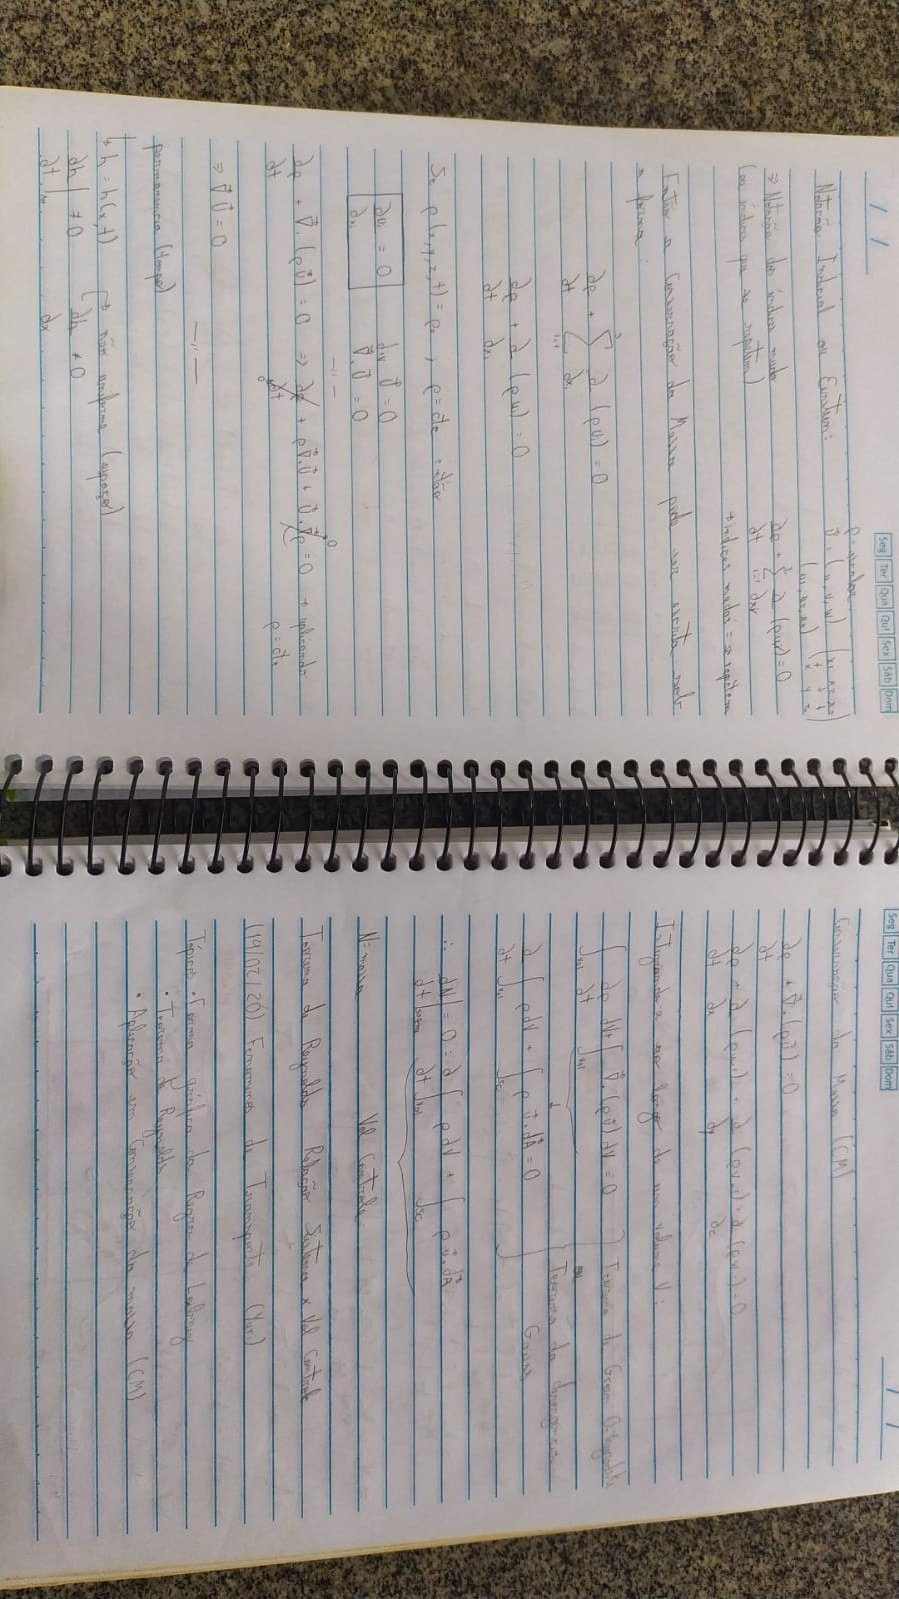 / /
Seg Ter Qua Qui Sex Sáb Dom
Notação Indicial ou Einstein:
ρ = escalar
V⃗ = (u, v, w)
(u₁, u₂, u₃)
(x₁, x₂, x₃)
x y z
⇒ Notação dos índices mudo
(ou índices que se repetem)
∂ρ/∂t + Σ ∂/∂xᵢ (ρuᵢ) = 0
→ índices mudos = se repetem
Então a Conservação da Massa pode ser escrita sob
a forma:
∂ρ/∂t + Σ ∂/∂xᵢ (ρuᵢ) = 0
∂ρ/∂t + ∂/∂xᵢ (ρuᵢ) = 0
Se ρ(x,y,z,t) = ρ₀ , ρ = cte então
∂uᵢ/∂xᵢ = 0
div V⃗ = 0
∇⃗.V⃗ = 0
— 〃 —
∂ρ/∂t + ∇⃗.(ρV⃗) = 0 ⇒ ∂ρ/∂t + ρ∇⃗.V⃗ + V⃗.∇⃗ρ = 0 → aplicando
ρ = cte
⇒ ∇⃗.V⃗ = 0
— 〃 —
permanência (tempo)
↳ h = h(x,t)
não uniforme (espaço)
∂h/∂t ≠ 0
∂h/∂x ≠ 0
Seg Ter Qua Qui Sex Sáb Dom
/ /
Conservação da Massa (CM)
∂ρ/∂t + ∇⃗.(ρV⃗) = 0
∂ρ/∂t + ∂/∂x (ρu) + ∂/∂y (ρv) + ∂/∂z (ρw) = 0
Integrando-a ao longo de um volume V:
∫ ∂ρ/∂t dV + ∫ ∇⃗.(ρV⃗) dV = 0
Teorema de Green
ou
Teorema da divergência
Gauss
∂/∂t ∫ ρ dV + ∫ ρ V⃗.dA⃗ = 0
∴ dN/dt | = 0 = ∂/∂t ∫ ρ dV + ∫ ρ V⃗.dA⃗
N = massa
Vol Controle
Teorema de Reynolds Relação Sistema x Vol Controle
(14/02/20) Fenômenos de Transporte
Tópicos • Forma gráfica da Regra de Leibniz
• Teorema de Reynolds
• Aplicação em Conservação da massa (CM)